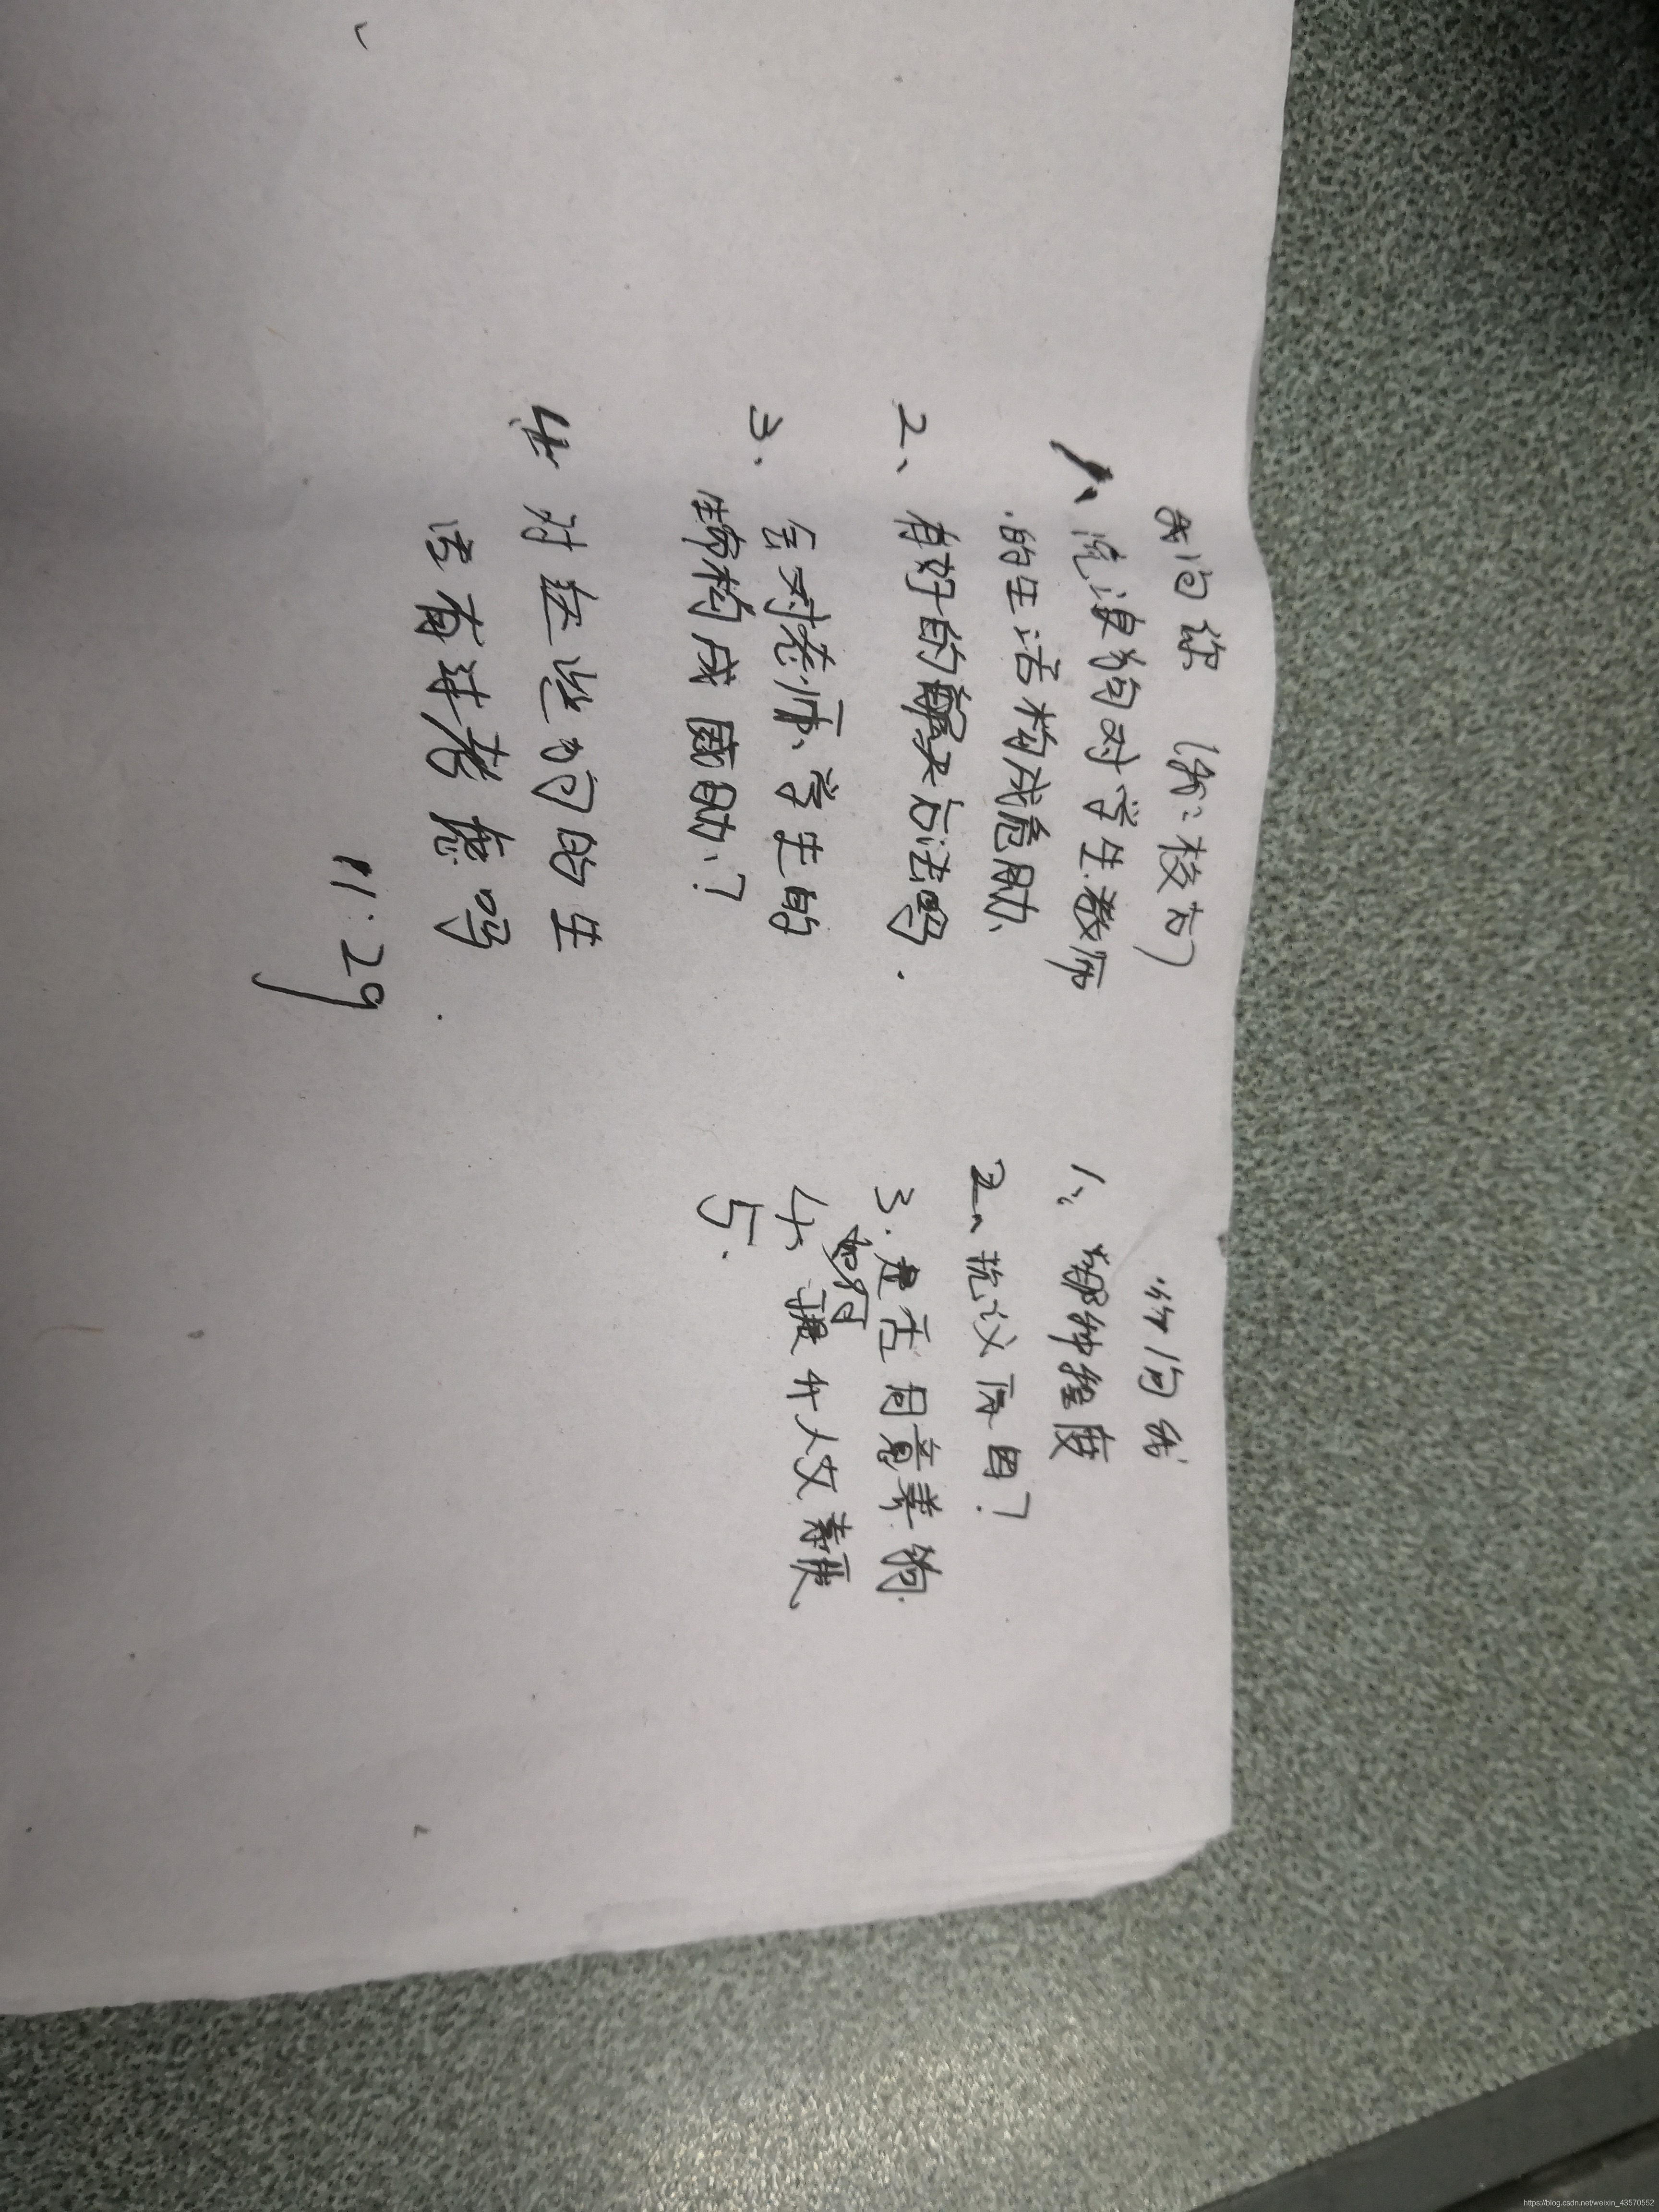 我问你 (你:校方)
1、流浪狗对学生教师
的生活构成危胁
2、有好的解决方法吗.
3、会对老师、学生的
生命构成威胁、?
4、对这些狗的生
活有过考虑吗
11:29
你问我
1、哪种程度
2、抗议原因?
3.是否同意养狗.
如何
4、提升人文素质、
5.
https://blog.csdn.net/weixin_43570552